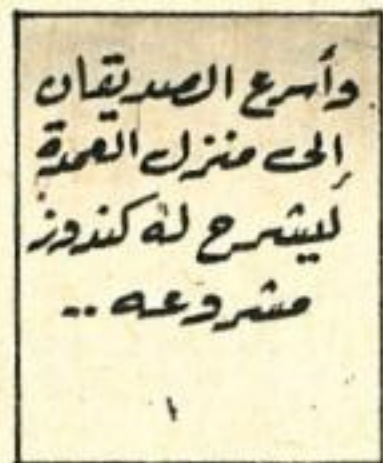 وأسرع الصديقان
إلى منزل العمدة
ليشرح له كندوز
مشروعه ..
١